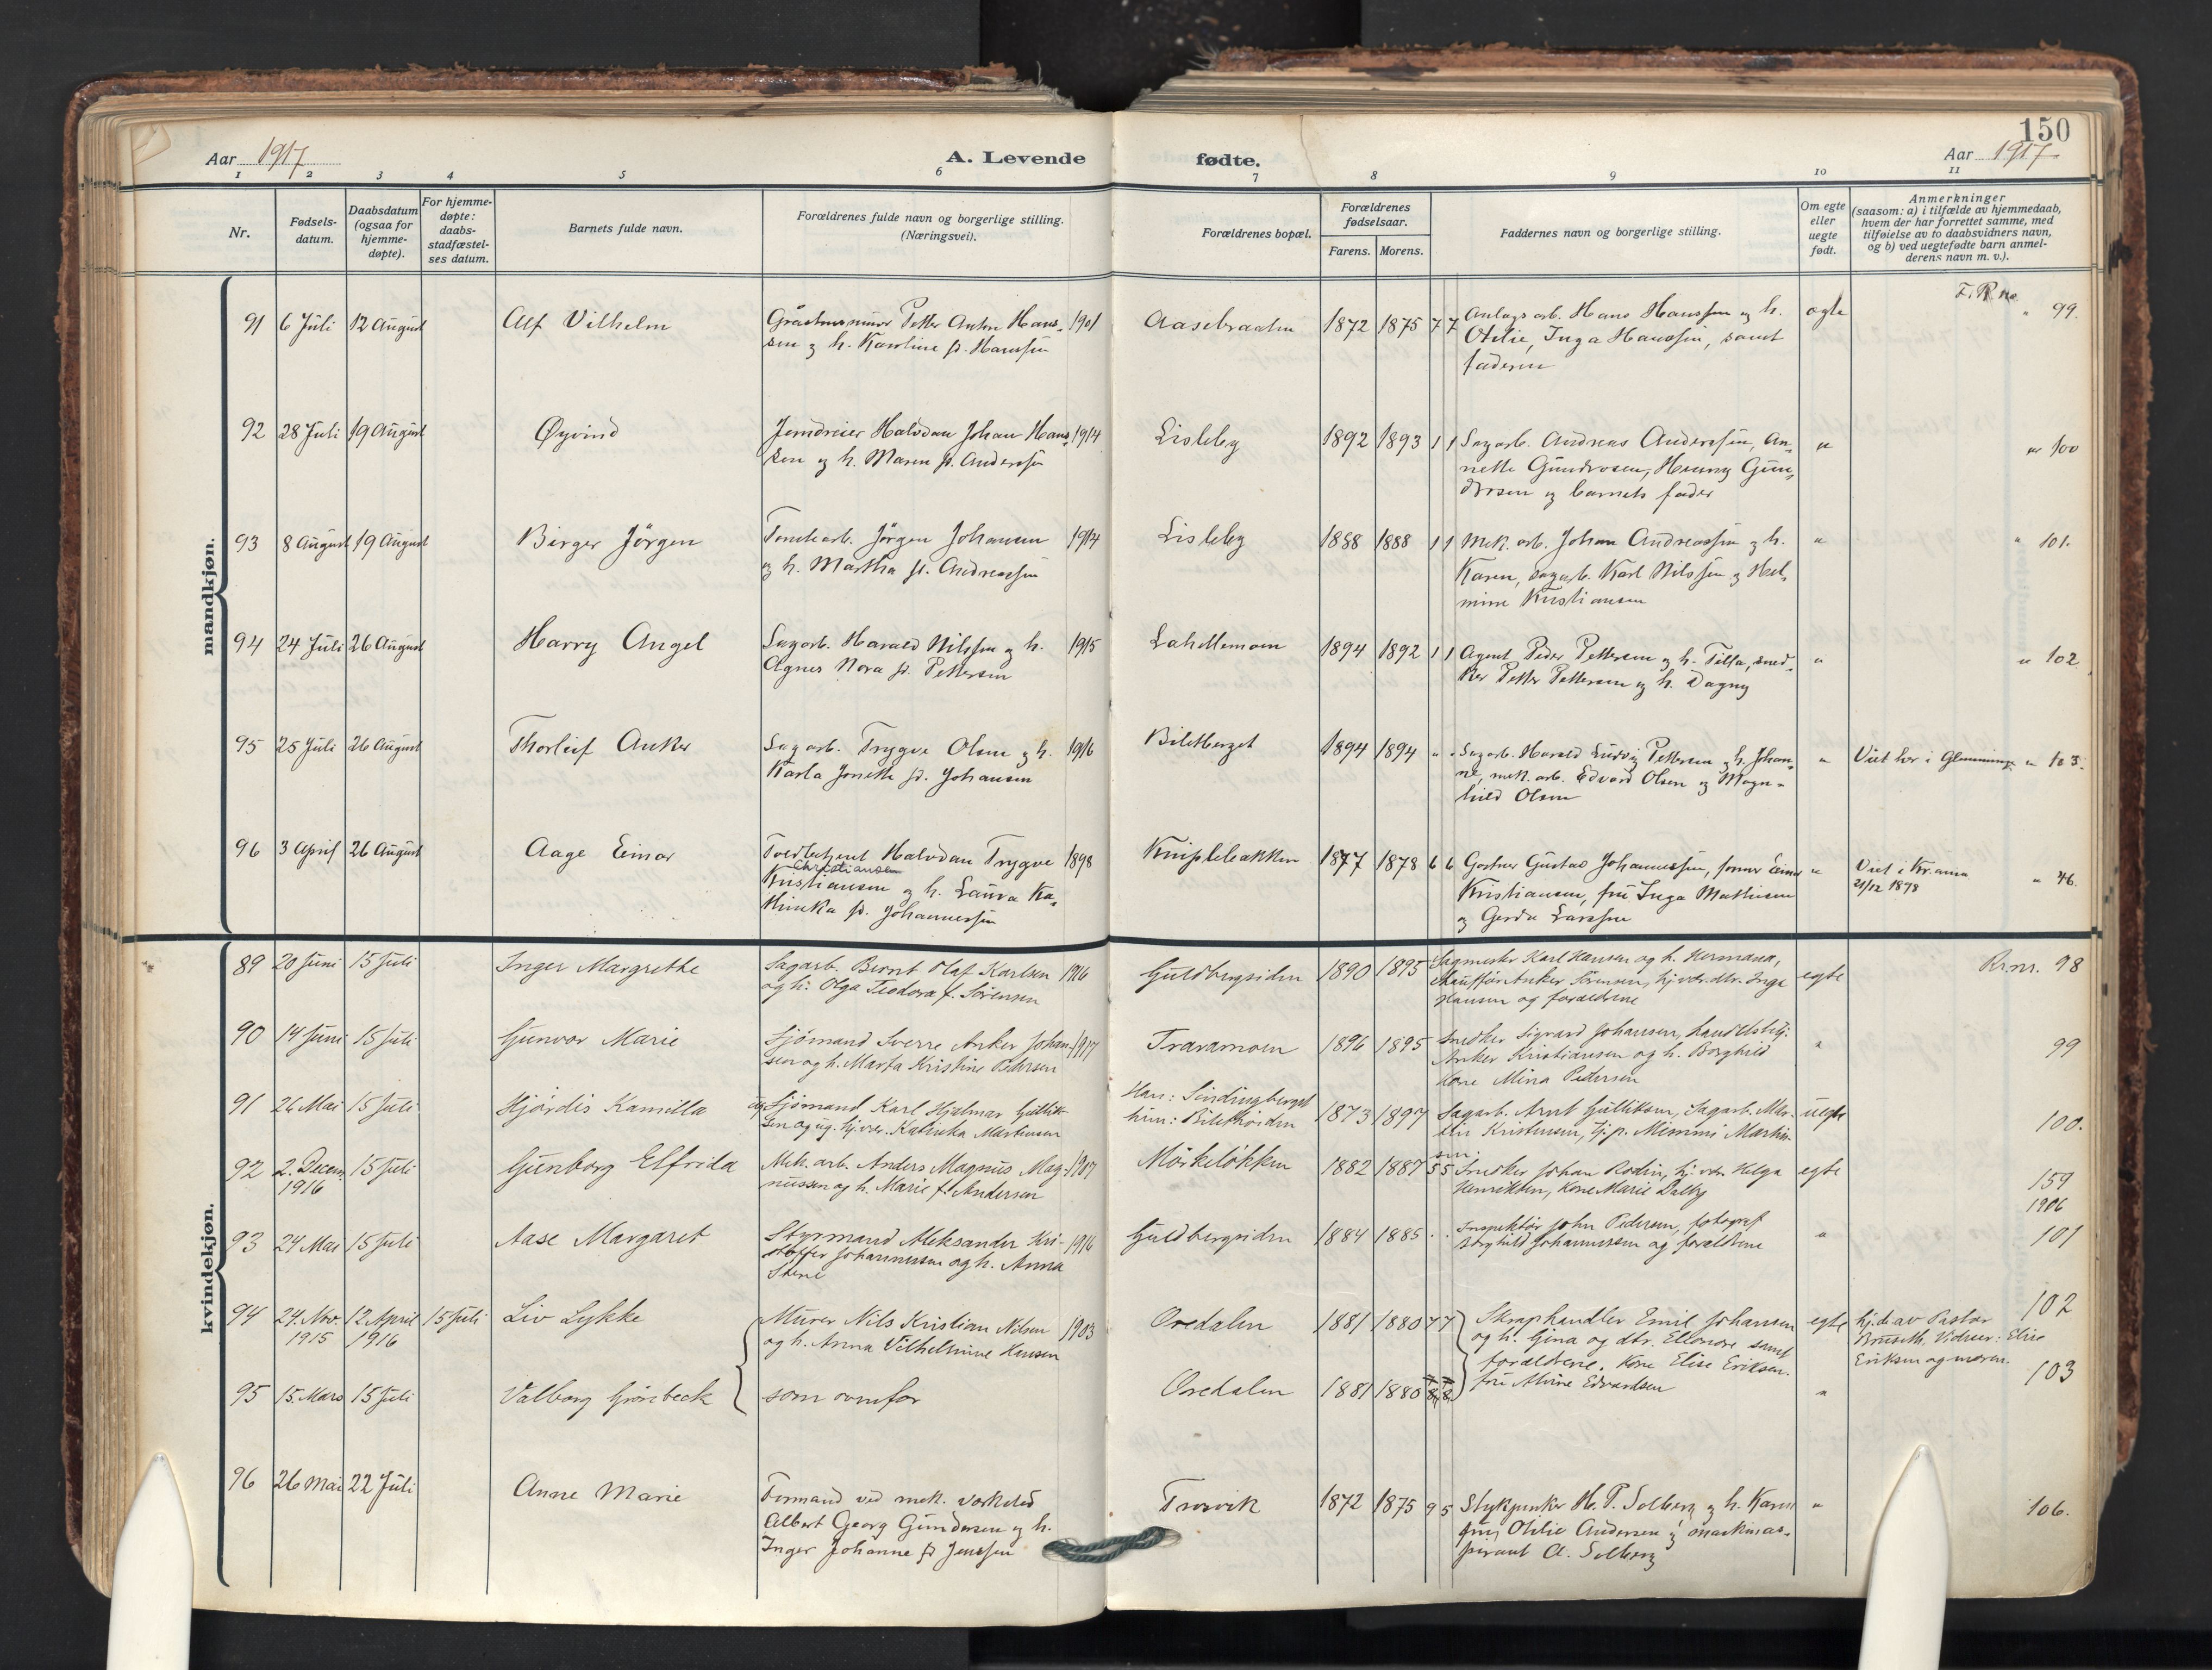 150
Aar 1917
A. Levende
fødte.
Aar 1917
1 2 3 4 5 6 7 8 9 10 11
Nr.
Fødsels-
datum.
Daabsdatum
(ogsaa for
hjemme-
døpte).
For hjemme-
døpte:
daabs-
stadfæstel-
ses datum.
Barnets fulde navn.
Forældrenes fulde navn og borgerlige stilling.
(Næringsvei).
Forældrenes bopæl.
Forældrenes
fødselsaar.
Farens. Morens.
Faddernes navn og borgerlige stilling.
Om egte
eller
uegte
født.
Anmerkninger
(saasom: a) i tilfælde av hjemmedaab,
hvem der har forrettet samme, med
tilføielse av to daabsvidners navn,
og b) ved uegtefødte barn anmel-
derens navn m. v.).
mandkjøn.
91 6 Juli 12 August Alf Vilhelm Petter Anton Hans- 1901 Aasebraaten 1872 1875 7 7 Anlags arb. Hans Hanssen og h. egte F. R. no. 99.
sen og h. Karoline f. Hanssen
Otilie, Inga Hanssen, samt
faderen
92 28 Juli 19 August Øyvind Jerndreier Halvdan Johan Hans- 1914 Lisleby 1892 1893 1 1 Sagarb. Andreas Anderssen, An- " " 100
sen og h. Maren f. Anderssen
nette Gundrosen, Henny Gun-
drosen og barnets fader
93 8 August 19 August Birger Jörgen Tomtearb. Jörgen Johansen 1914 Lisleby 1888 1888 1 1 Mek. arb. Johan Andreassen og h. " " 101.
og h. Martha f. Andreassen
Karen, sagarb. Karl Nilssen og Hel-
mine Kristiansen
94 24 Juli 26 August Harry Angel Sagarb. Harald Nilssen og h. 1915 Lahellemoen 1894 1892 1 1 Agent Peder Pettersen og h. Tilla, sned- " " 102
Agnes Nora f. Pettersen
ker Petter Pettersen og h. Dagny
95 25 Juli 26 August Thorleif Anker Sagarb. Trygve Olsen og h. 1916 Biletberget 1894 1894 " " Sagarb. Harald Ludvig Pettersen og h. Johan- " Viet her i Glemminge " 103.
Karla Jonette f. Johansen
ne, mek. arb. Edvard Olsen og Magn-
hild Olsen
96 3 April 26 August Aage Einar Toldbetjent Halvdan Trygve 1898 Kniplebakken 1877 1878 6 6 Gartner Gustav Johannessen, Einar " Viet i Kr.ania " 46.
Christiansen
Kristiansen og h. Laura Ka-
thinka f. Johannessen
Kristiansen, fru Inga Mathisen
og Gerda Larssen
21/12 1898
kvindekjøn.
89 20 Juni 15 Juli Inger Margrethe Sagarb. Bernt Olaf Karlsen 1916 Guldbergsiden 1890 1895 Sagmester Karl Hansen og h. Hermana, egte R. nr. 98
og h. Olga Teodora f. Sörensen
Chauffør Anker Sörensen, hj.vær. dtr. Inga
Hansen og forældrene
90 14 Juni 15 Juli Gunvor Marie Sjömand Sverre Anker Johan- 1917 Traramoen 1896 1895 Snedker Sigvard Johansen, handelsbetj. " 99
sen og h. Marta Kristine Pedersen
Anker Kristiansen og h. Borghild
Kone Mina Pedersen
91 26 Mai 15 Juli Hjördis Kamilla ug. Sjömand Karl Hjalmar Gullik- Han: Sindingberget 1873 1897 Sagarb. Arnt Gulliksen, Sagarb. Mar- uegte 100.
sen og ug. hj.vær. Katinka Martinsen
hun: Biletkoiden
tin Kristensen, hj. p. Mimmi Martin-
sen.
92 2. Decem. 15 Juli Gunborg Elfrida Mek. arb. Anders Magnus Mag- 1907 Mørkeløkken 1882 1887 5 5 Snedker Johan Rodin, hj. vær. Helga egte 159
1916
nussen og h. Marie f. Andersen
Henriksen, Kone Marie Dalby
1906
93 24 Mai 15 Juli Aase Margaret Styrmand Aleksander Kri- 1916 Guldbergsiden 1884 1885 " " Inspektør John Pedersen, fotograf " 101
stoffer Johannessen og h. Anna
Stene
Borghild Johannessen og forældrene
94 24. Nov. 12 April 15 Juli Liv Lykke Murer Nils Kristian Nilsen 1903 Oredalen 1881 1880 7 7 Skraphandler Emil Johansen egte hj.d. av Pastor 102
1915 1916
og h. Anna Vilhelmine Hansen
og h. Gina og dtr. Ellonore samt
Bruseth. Vidner: Elise
forældrene. Kone Elise Eriksen.
Eriksen og moren.
95 15. Mars 15 Juli Valborg Gjörebeck som ovenfor Oredalen 1881 1880 8 8 fru Alvine Edvardsen " 103
96 26 Mai 22 Juli Anne Marie Formand ved mek. verksted Trosvik 1872 1875 9 5 Stykjunker H. P. Solberg og h. Karen " 106.
Albert Georg Gundersen og h.
Inger Johanne f. Jenssen
fru Otilie Andersen og maskinas-
pirant A. Solberg